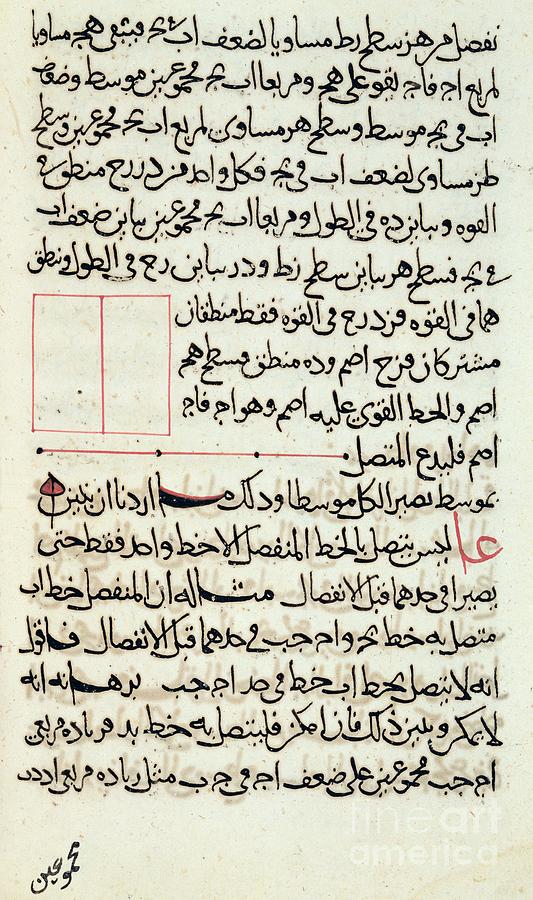 نفصل من هز سطح زط مساويا لضعف اب في بج فيبقى هج مساويا
لمربع اج فاج يقوى على هج ومربعا اب بج مجموعين موسط وضعف
اب في بج موسط وسطح هز مساوى لمربع اب بج مجموعين وسطح
طز مساوى لضعف اب في بج فكل واحد من دز زح منطق في
القوه ومباين ده في الطول ومربعا اب بج مجموعين مباين ضعف اب
في بج فسطح هز مباين سطح زط ودز مباين زح في الطول ومنطق
هما في القوه فزد زح في القوه فقط منطقان
مشتركان فدح اصم وده منطق فسطح هح
اصم والخط القوى عليه اصم وهو اج فاج
اصم فليدع المتصل
بموسط يصير الكل موسطا وذلك ما اردنا ان نبين
عا ليس يتصل بالخط المنفصل الا خط واحد فقط حتى
يصيرا في حدهما قبل الانفصال مثاله ان المنفصل خط اب
متصل به خط بج واج جب في حدهما قبل الانفصال فاقول
انه لا يتصل بخط اب خط في حد اج جب برهانه انه
لا يمكن وبين ذلك فان امكن فليتصل به خط بد فزياده مربعى
اج جب مجموعين على ضعف اج في جب مثل زياده مربعى اد دب
مجموعين
fine art
america